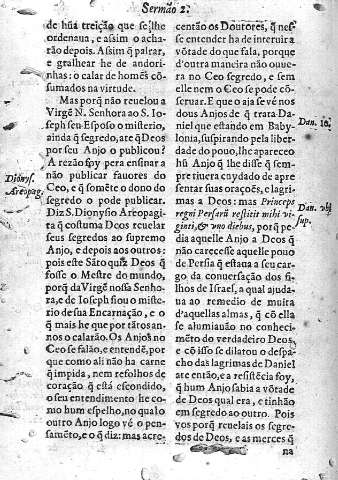 Sermão 2.
de hũa treição que se lhe
ordenaua, e assim o acha-
rão depois. Assim q̃ palrar,
e gralhear he de andori-
nhas: o calar de homẽs cõ-
sumados na virtude.
Mas porq̃ não reuelou a
Virgẽ N. Senhora ao S. Io-
seph seu Esposo o misterio,
ainda q̃ segredo, atè q̃ Deos
por seu Anjo o publicou?
A rezão foy pera ensinar a
não publicar fauores do
Ceo, e q̃ somẽte o dono do
segredo o pode publicar.
Diz S. Dionysio Areopagi-
ta q̃ costuma Deos reuelar
seus segredos ao supremo
Anjo, e depois aos outros:
pois este Sãto quiz Deos q̃
fosse o Mestre do mundo,
porq̃ da Virgẽ nossa Senho-
ra, e de Ioseph fiou o miste-
rio de sua Encarnação, e o
q̃ mais he que por tãtos an-
nos o calarão. Os Anjos no
Ceo se falão, e entendẽ, por
que como ali não ha carne
q̃ impida, nem refolhos de
coração q̃ està escondido,
o seu entendimento he co-
mo hum espelho, no qual o
outro Anjo logo vê o pen-
samẽto, e o q̃ diz: mas acre-
Dionys.
Areopag.
centão os Doutores, q̃ nes-
se entender ha de interuir a
võtade do que fala, porque
d'outra maneira não ouue-
ra no Ceo segredo, e sem
elle nem o Ceo se pode cõ-
seruar. E que o aja se vê nos
dous Anjos de q̃ trata Da-
niel que estando em Baby-
lonia, suspirando pela liber-
dade do pouo, lhe apareceo
hũ Anjo q̃ lhe disse q̃ sem-
pre tiuera cuydado de apre-
sentar suas orações, e lagri-
mas a Deos: mas Princeps
regni Persarũ restitit mihi vi-
ginti, & vno diebus, porq̃ pe-
dia aquelle Anjo a Deos q̃
não carecesse aquelle pouo
de Persia q̃ estaua a seu car-
go da conuersação dos fi-
lhos de Israel, a qual ajuda-
ua ao remedio de muita
d'aquellas almas, q̃ cõ ella
se alumiauão no conheci-
mẽto do verdadeiro Deos,
e cõ isso se dilatou o despa-
cho das lagrimas de Daniel
atè então, e a resistẽcia foy,
q̃ hum Anjo sabia a võtade
de Deos qual era, e tinhão
em segredo ao outro. Pois
vos porq̃ reuelais os segre-
dos de Deos, e as merces q̃
na
Dan. 10.
sup.